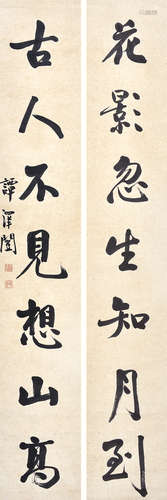 花影忽生知月到
古人不見想山高
譚澤闓